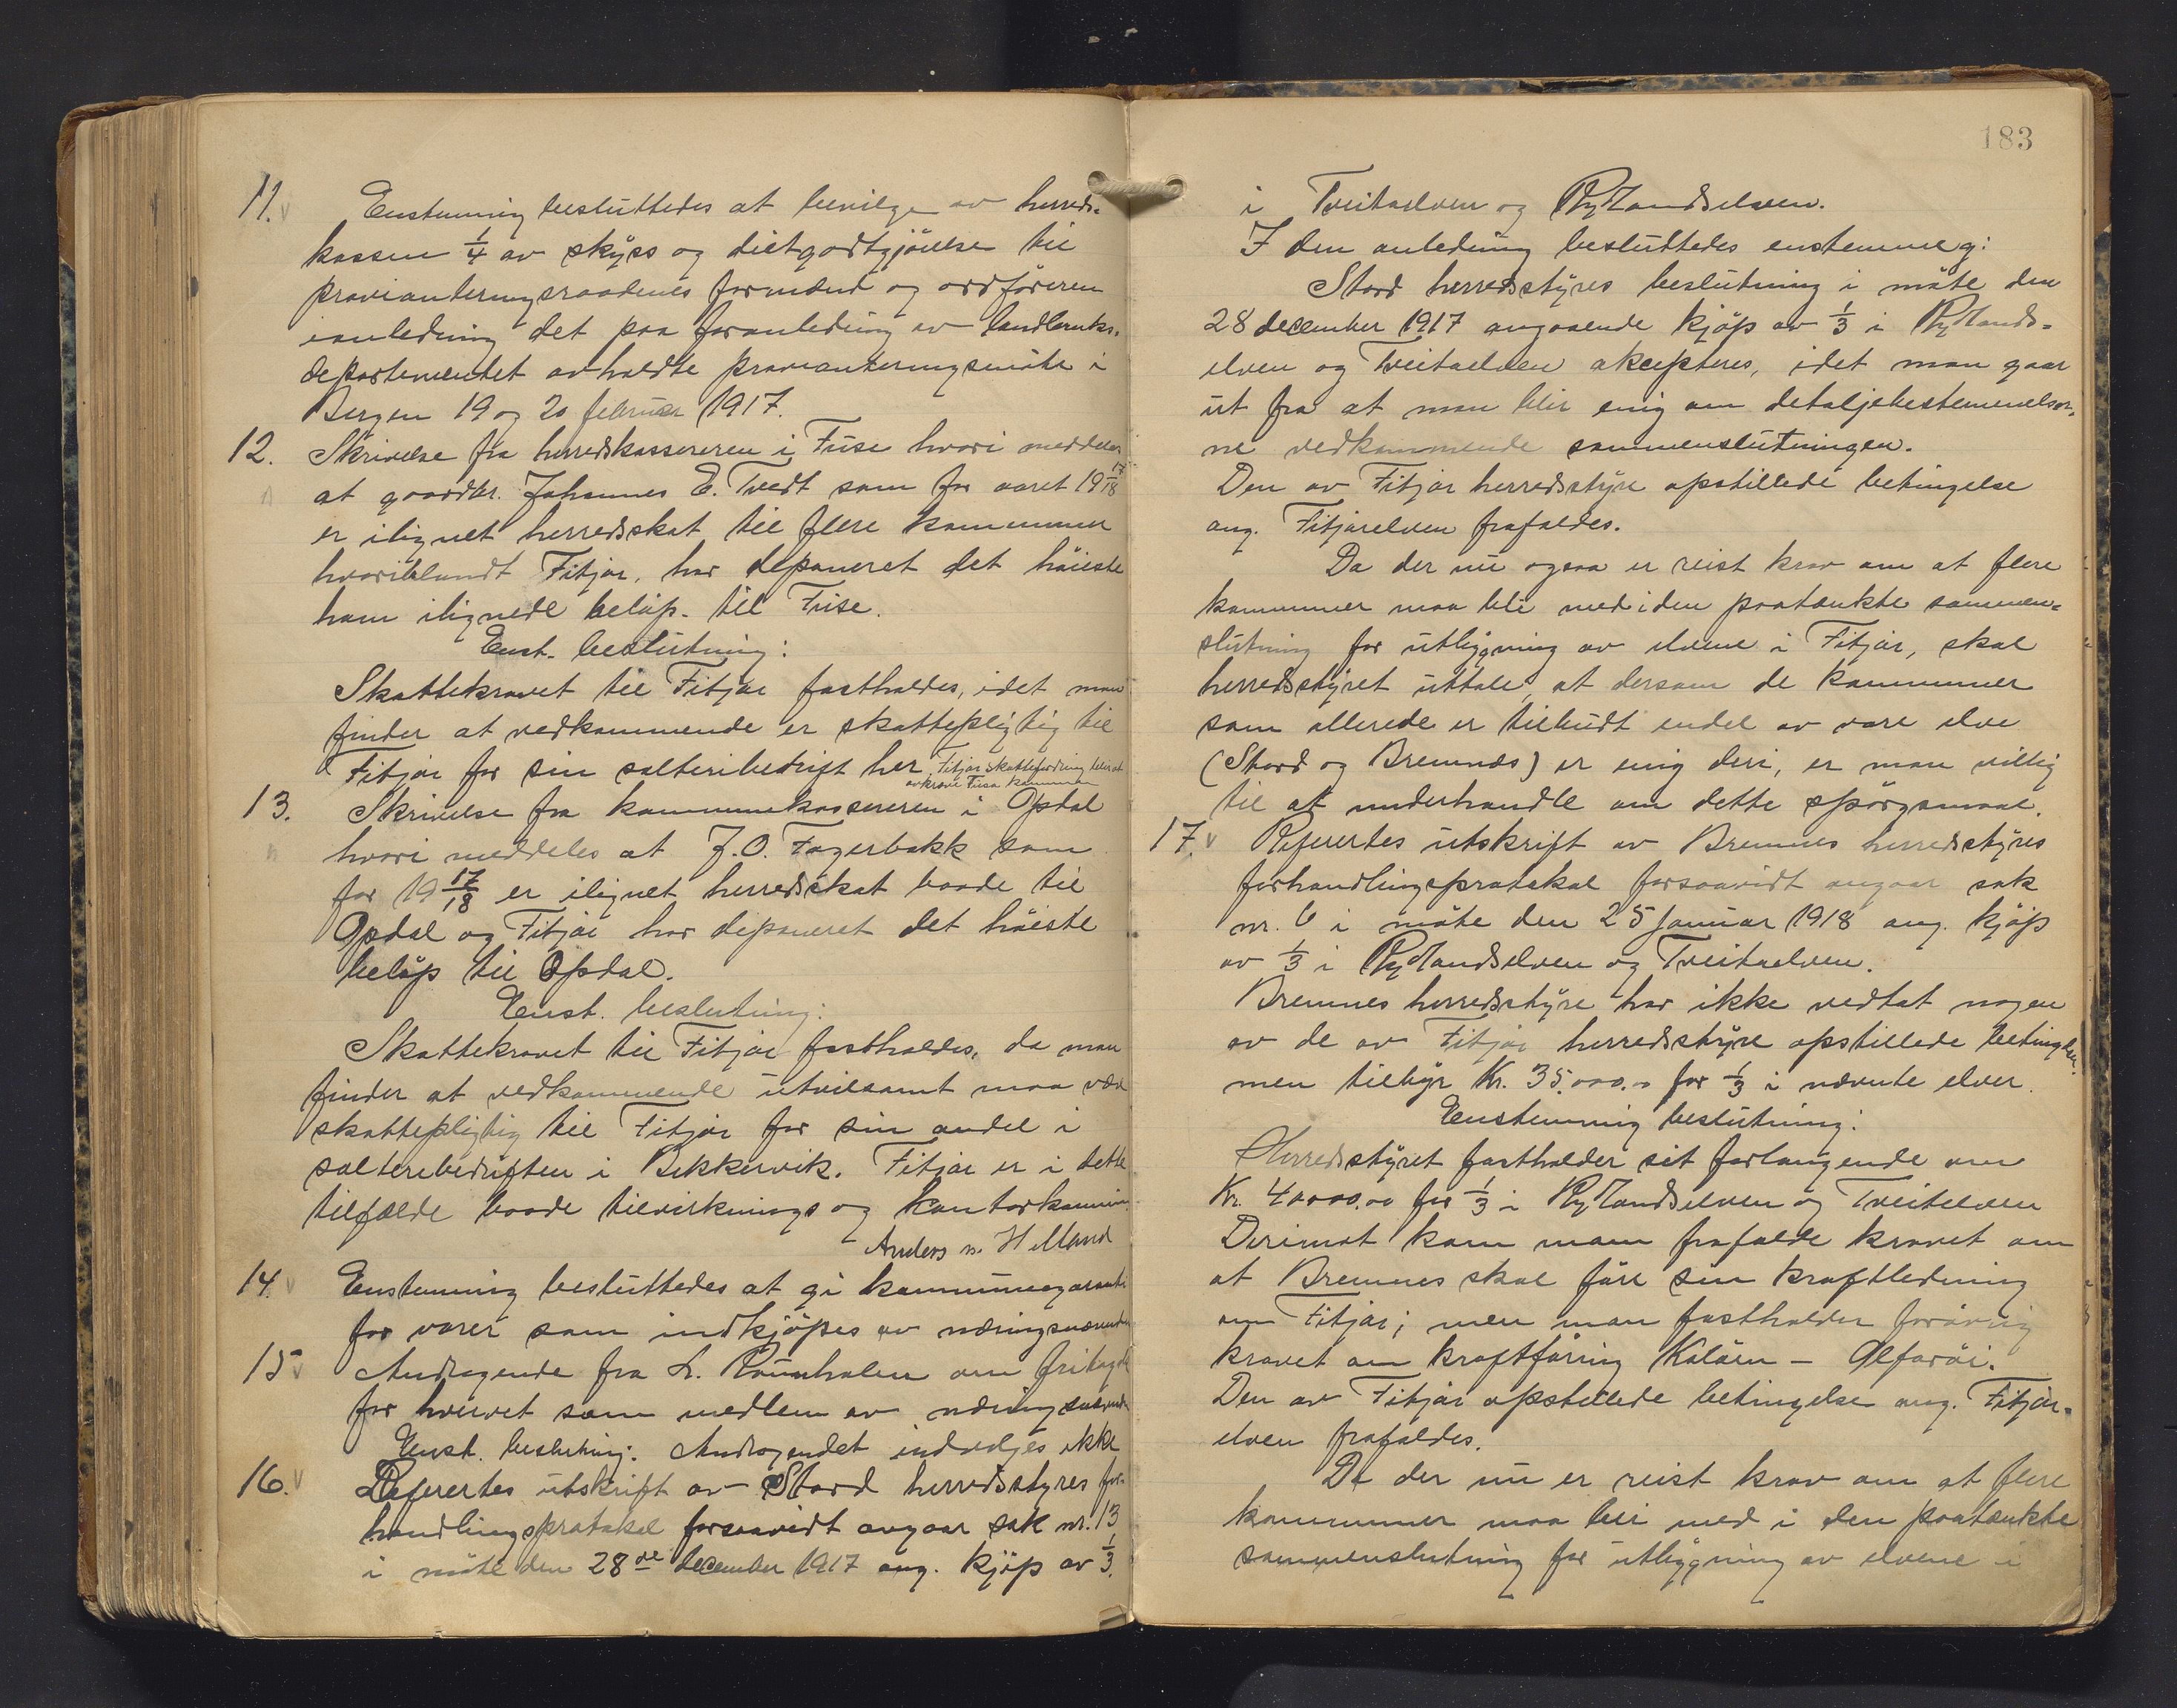 11. Enstemmig besluttedes at bevilge av herreds-
kassen 1/4 av skyss og dietgodtgjörelse til
provianteringsraadenes formænd og ordföreren
i anledning det paa foranledning av landbruks-
departementet avholdte provianteringsmöte i
Bergen 19 og 20 februar 1917.
12. Skrivelse fra herredskassereren i Fuse hvori meddeles
at gaardbr. Johannes E. Tvedt som for aaret 19 17/18
er ilignet herredsskat til flere kommuner
hvoriblandt Fitjar, har deponeret det höieste
ham ilignede belöp til Fuse.
Enst. beslutning:
Skattekravet til Fitjar fastholdes, idet man
finder at vedkommende er skattepligtig til
Fitjar for sin salteribedrift her. Fitjar skattefordring blir at
avkræve Fusa kommune
13. Skrivelse fra kommunekassereren i Opdal
hvori meddeles at J. O. Fagerbakk som
for 19 17/18 er ilignet herredsskat baade til
Opdal og Fitjar har deponeret det höieste
belöp til Opdal.
Enst. beslutning:
Skattekravet til Fitjar fastholdes, da man
finder at vedkommende utvilsomt maa være
skattepligtig til Fitjar for sin andel i
salteribedriften i Bekkervik. Fitjar er i dette
tilfælde baade tilvirknings og kontorkommune
Anders M. Helland
14. Enstemmig besluttedes at gi kommunegaranti
for varer som indkjöpes av næringsnævnden
15 Andragende fra L. Rimmhalen om fritagelse
for hvervet som medlem av næringsnævnden
Enst. beslutning: Andragendet indvilges ikke
16. Refertes utskrift av Stord herredsstyres for-
handlingsprotokol forsaavidt angaar sak nr. 13
i möte den 28de december 1917 ang. kjöp av 1/3
183
i Tveitaelven og Rydlandselven.
I den anledning besluttedes enstemmeg:
Stord herredsstyres beslutning i möte den
28 december 1917 angaaende kjöp av 1/3 i Rydlands-
elven og Tveitaelven akcepteres, idet man gaar
ut fra at man blir enig om detaljebestemmelser-
ne vedkommende sammenslutningen.
Den av Fitjar herredsstyre opstillede betingelse
ang. Fitjarelven frafaldes.
Da der nu ogsaa er reist krav om at flere
kommuner maa bli med i den paatænkte sammen-
slutning for utbygning av elvene i Fitjar, skal
herredsstyret uttale, at dersom de kommuner
som allerede er tilbudt endel av vare elve
(Stord og Bremnes) er enig deri, er man villig
til at underhandle om dette spörgsmaal.
17. Refertes utskrift av Bremnes herredsstyres
forhandlingsprotokol forsaavidt angaar sak
nr. 6 i möte den 25 januar 1918 ang. kjöp
av 1/3 i Rydlandselven og Tveitaelven.
Bremnes herredsstyre har ikke vedtat nogen
av de av Fitjar herredsstyre opstillede betingelser.
men tilbyr Kr. 35.000.00 for 1/3 i nævnte elver.
Enstemmig beslutning:
Herredsstyret fastholder sit forlangende om
Kr. 40000.00 for 1/3 i Rydlandselven og Tveitelven
Derimot kan man frafalde kravet om
at Bremnes skal före sin kraftledning
om Fitjar; men man fastholder forövrig
kravet om kraftföring Kalöen - Olfaröi.
Den av Fitjar opstillede betingelse ang. Fitjar-
elven frafaldes.
Da der nu er reist krav om at flere
kommuner maa bli med i den paatænkte
sammenslutning for utbygning av elvene i